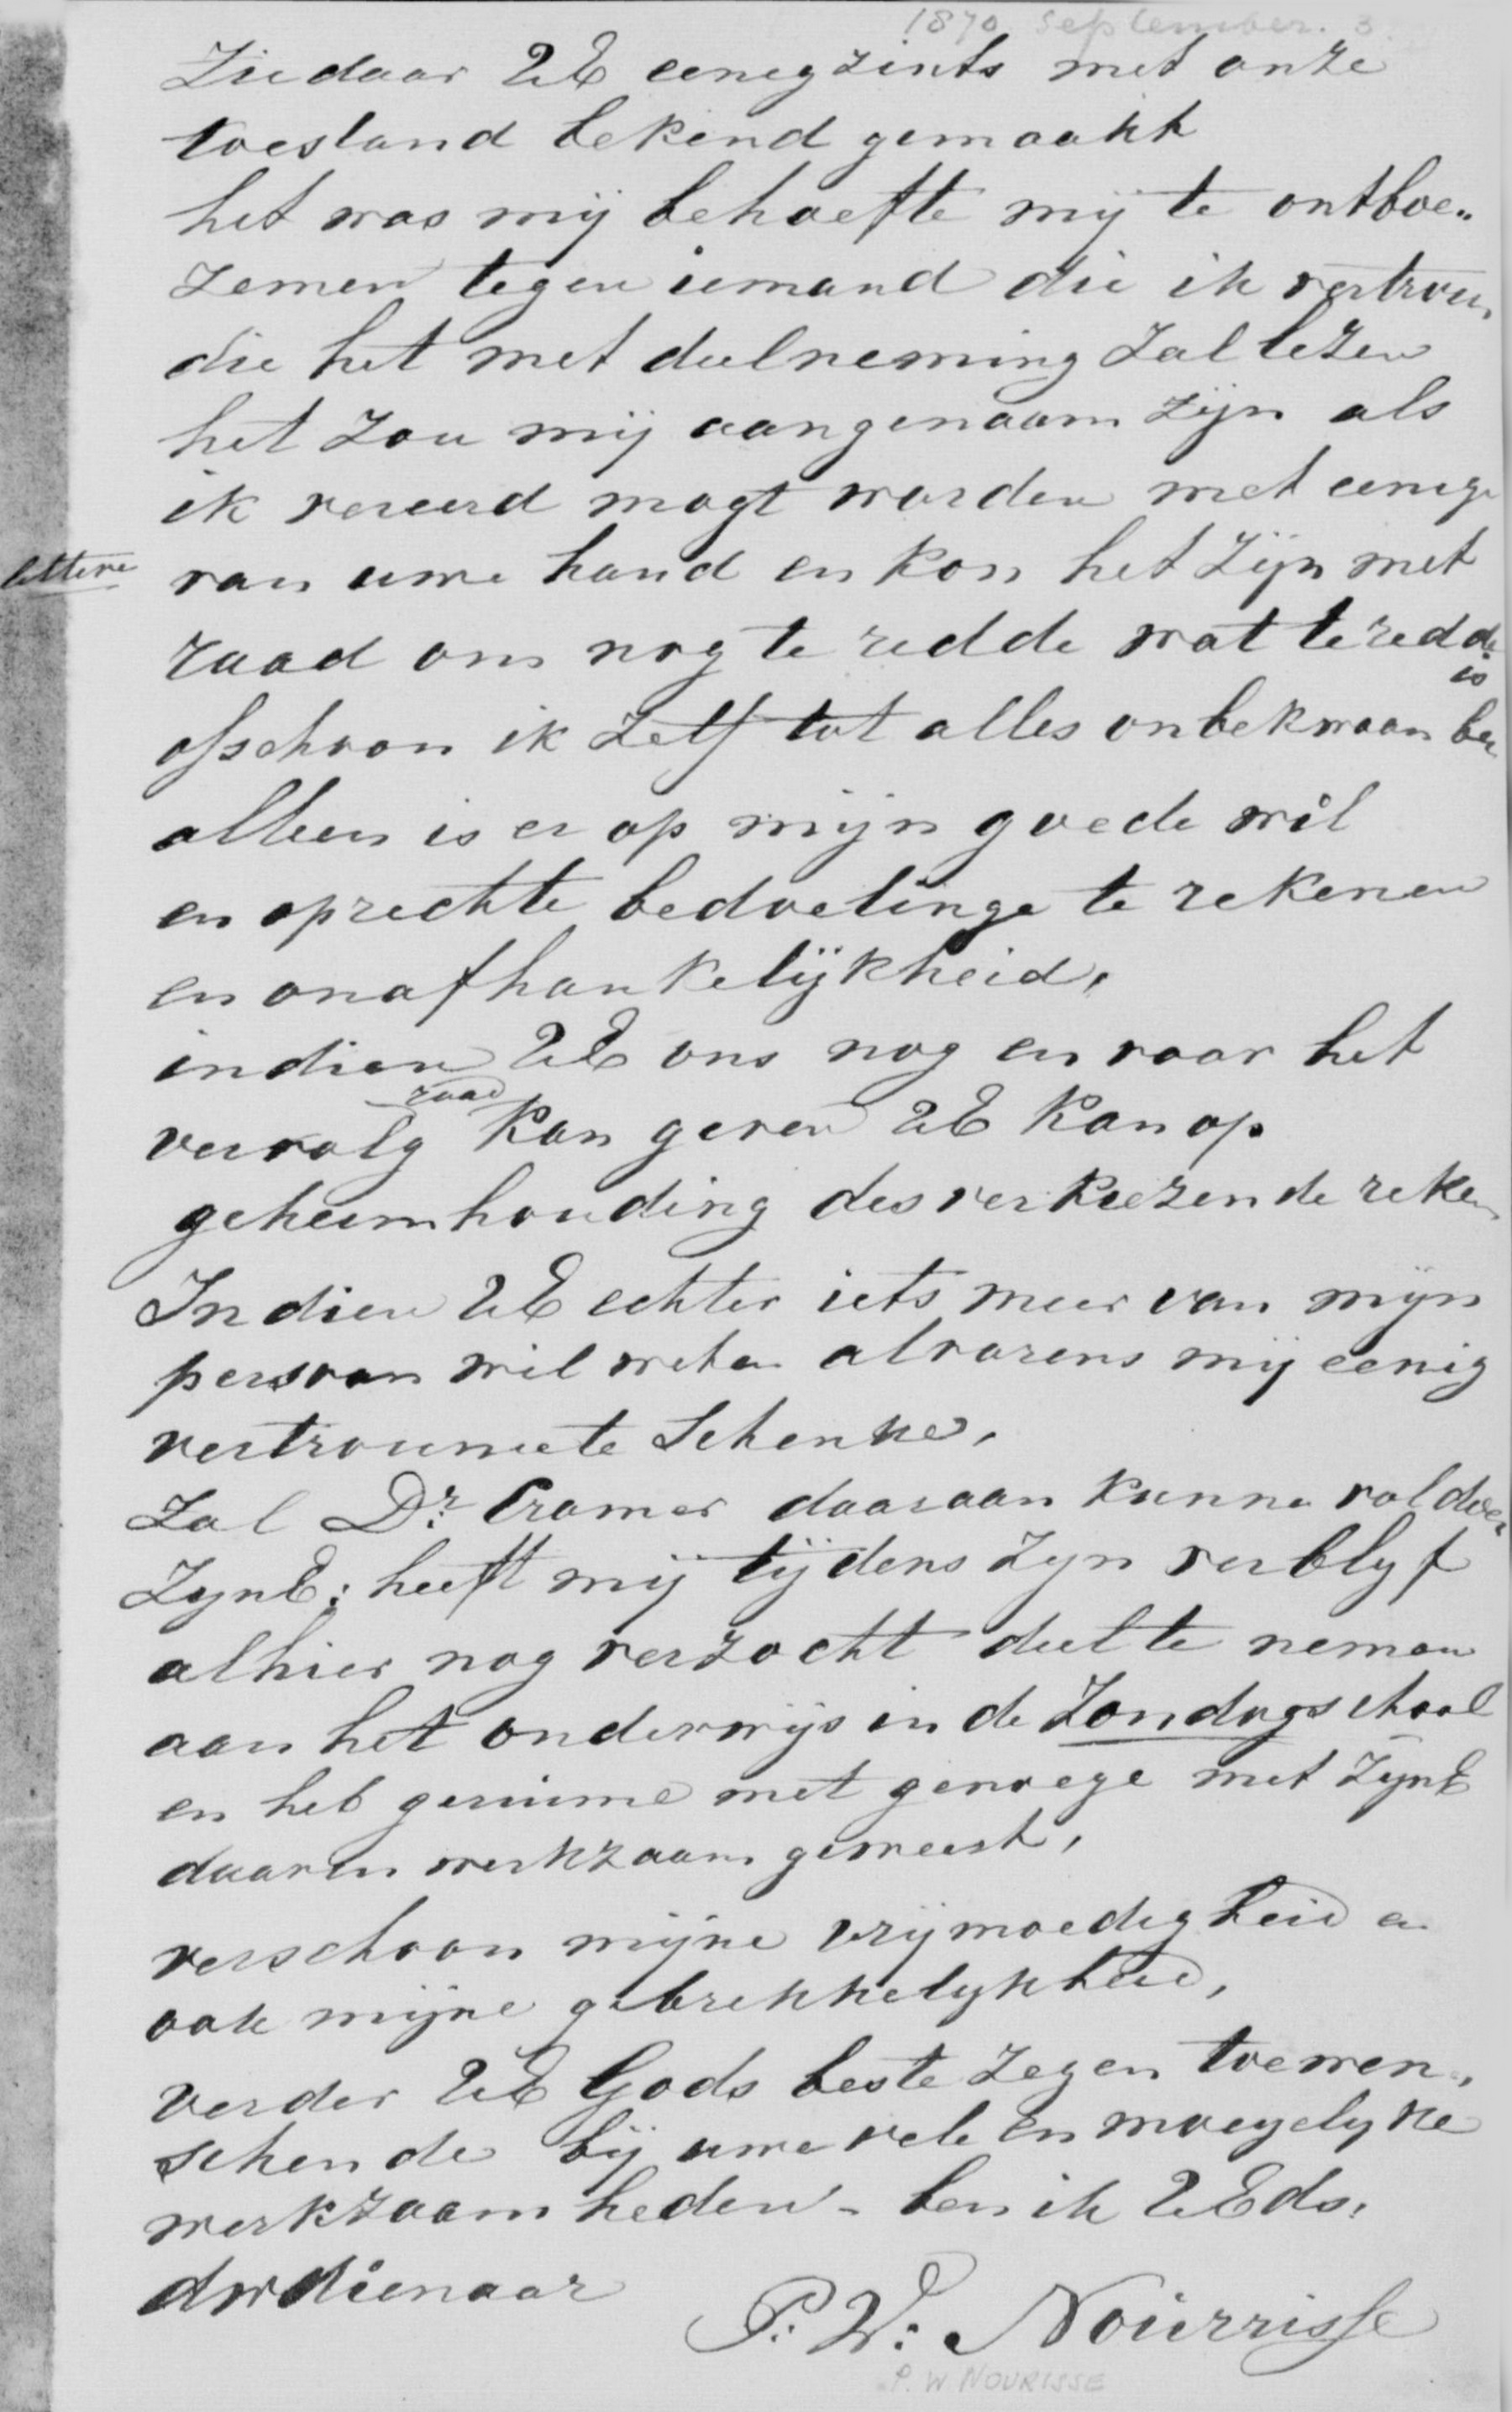 1870 September. 3.
Ziedaar UE eenegzints met onze
toestand bekend gemaakt
het was mij behoefte mij te ontboe„
zemen tegen iemand die ik vertrou,
die het met deelneming zal lezen
het zou mij aangenaam zijn als
ik vereerd mogt worden met eenige
lettere van uwe hand en kon het zijn met
raad om nog te redde wat te redde
is
ofschoon ik zelf tot alles onbekwaam ben
alleen is er op mijn goede wil
en oprechte bedoelinge te rekenen
en onafhankelijkheid,
indien UE ons nog en voor het
raad
vervolg kan geven UE kan op
geheimhouding desverkiezende reken
Indien UE echter iets meer van mijn
persoon wil weten alvorens mij eenig
vertrouwe te schenke,
Zal Dr. Cramer daaraan kunne voldoen
ZynE: heeft mij tijdens zyn verblyf
alhier nog verzocht deel te nemen
aan het onderwijs in de Zondagschool
en heb geruime met genoege met ZynE
daarin werkzaam geweest,
verschoon mijne vrijmoedigheid en
ook mijne gebrekkelykheid,
verder UE Gods beste zegen toewen„
schende bij uwe vele en moeyelyke
werkzaamheden - ben ik UEds.
dwdienaar
P: W: Nourrisse
P. W NOURISSE